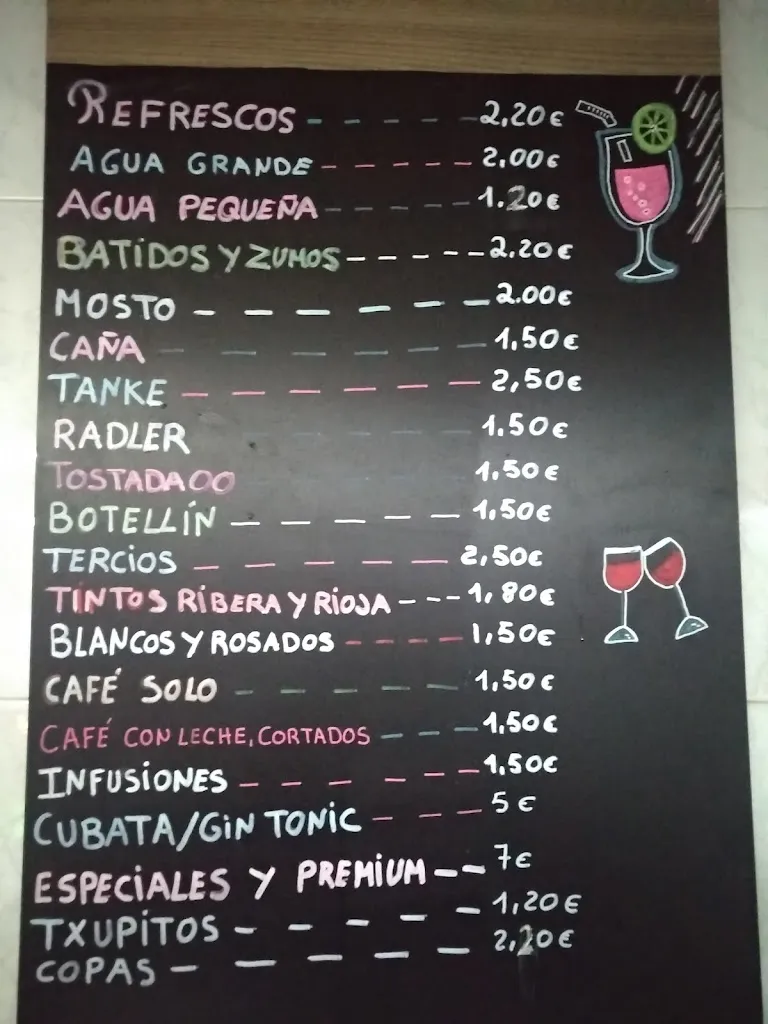 REFRESCOS - - - - - 2,20€
AGUA GRANDE - - - - - - 2,00€
AGUA PEQUEÑA - - - - - 1.20€
BATIDOS Y ZUMOS - - - - - - 2,20€
MOSTO - - - - - - 2.00€
CAÑA - - - - - - 1,50€
TANKE - - - - - - 2,50€
RADLER 1.50€
TOSTADA 00 1,50€
BOTELLÍN - - - - - 1,50€
TERCIOS - - - - - 2,50€
TINTOS RIBERA Y RIOJA - - - - 1,80€
BLANCOS Y ROSADOS - - - - 1,50€
CAFÉ SOLO - - - - - 1,50€
CAFÉ CON LECHE, CORTADOS - - - 1,50€
INFUSIONES - - - - - - 1,50€
CUBATA/GIN TONIC - - - 5€
ESPECIALES Y PREMIUM - - 7€
TXUPITOS - - - - - 1,20€
COPAS - - - - - 2,20€